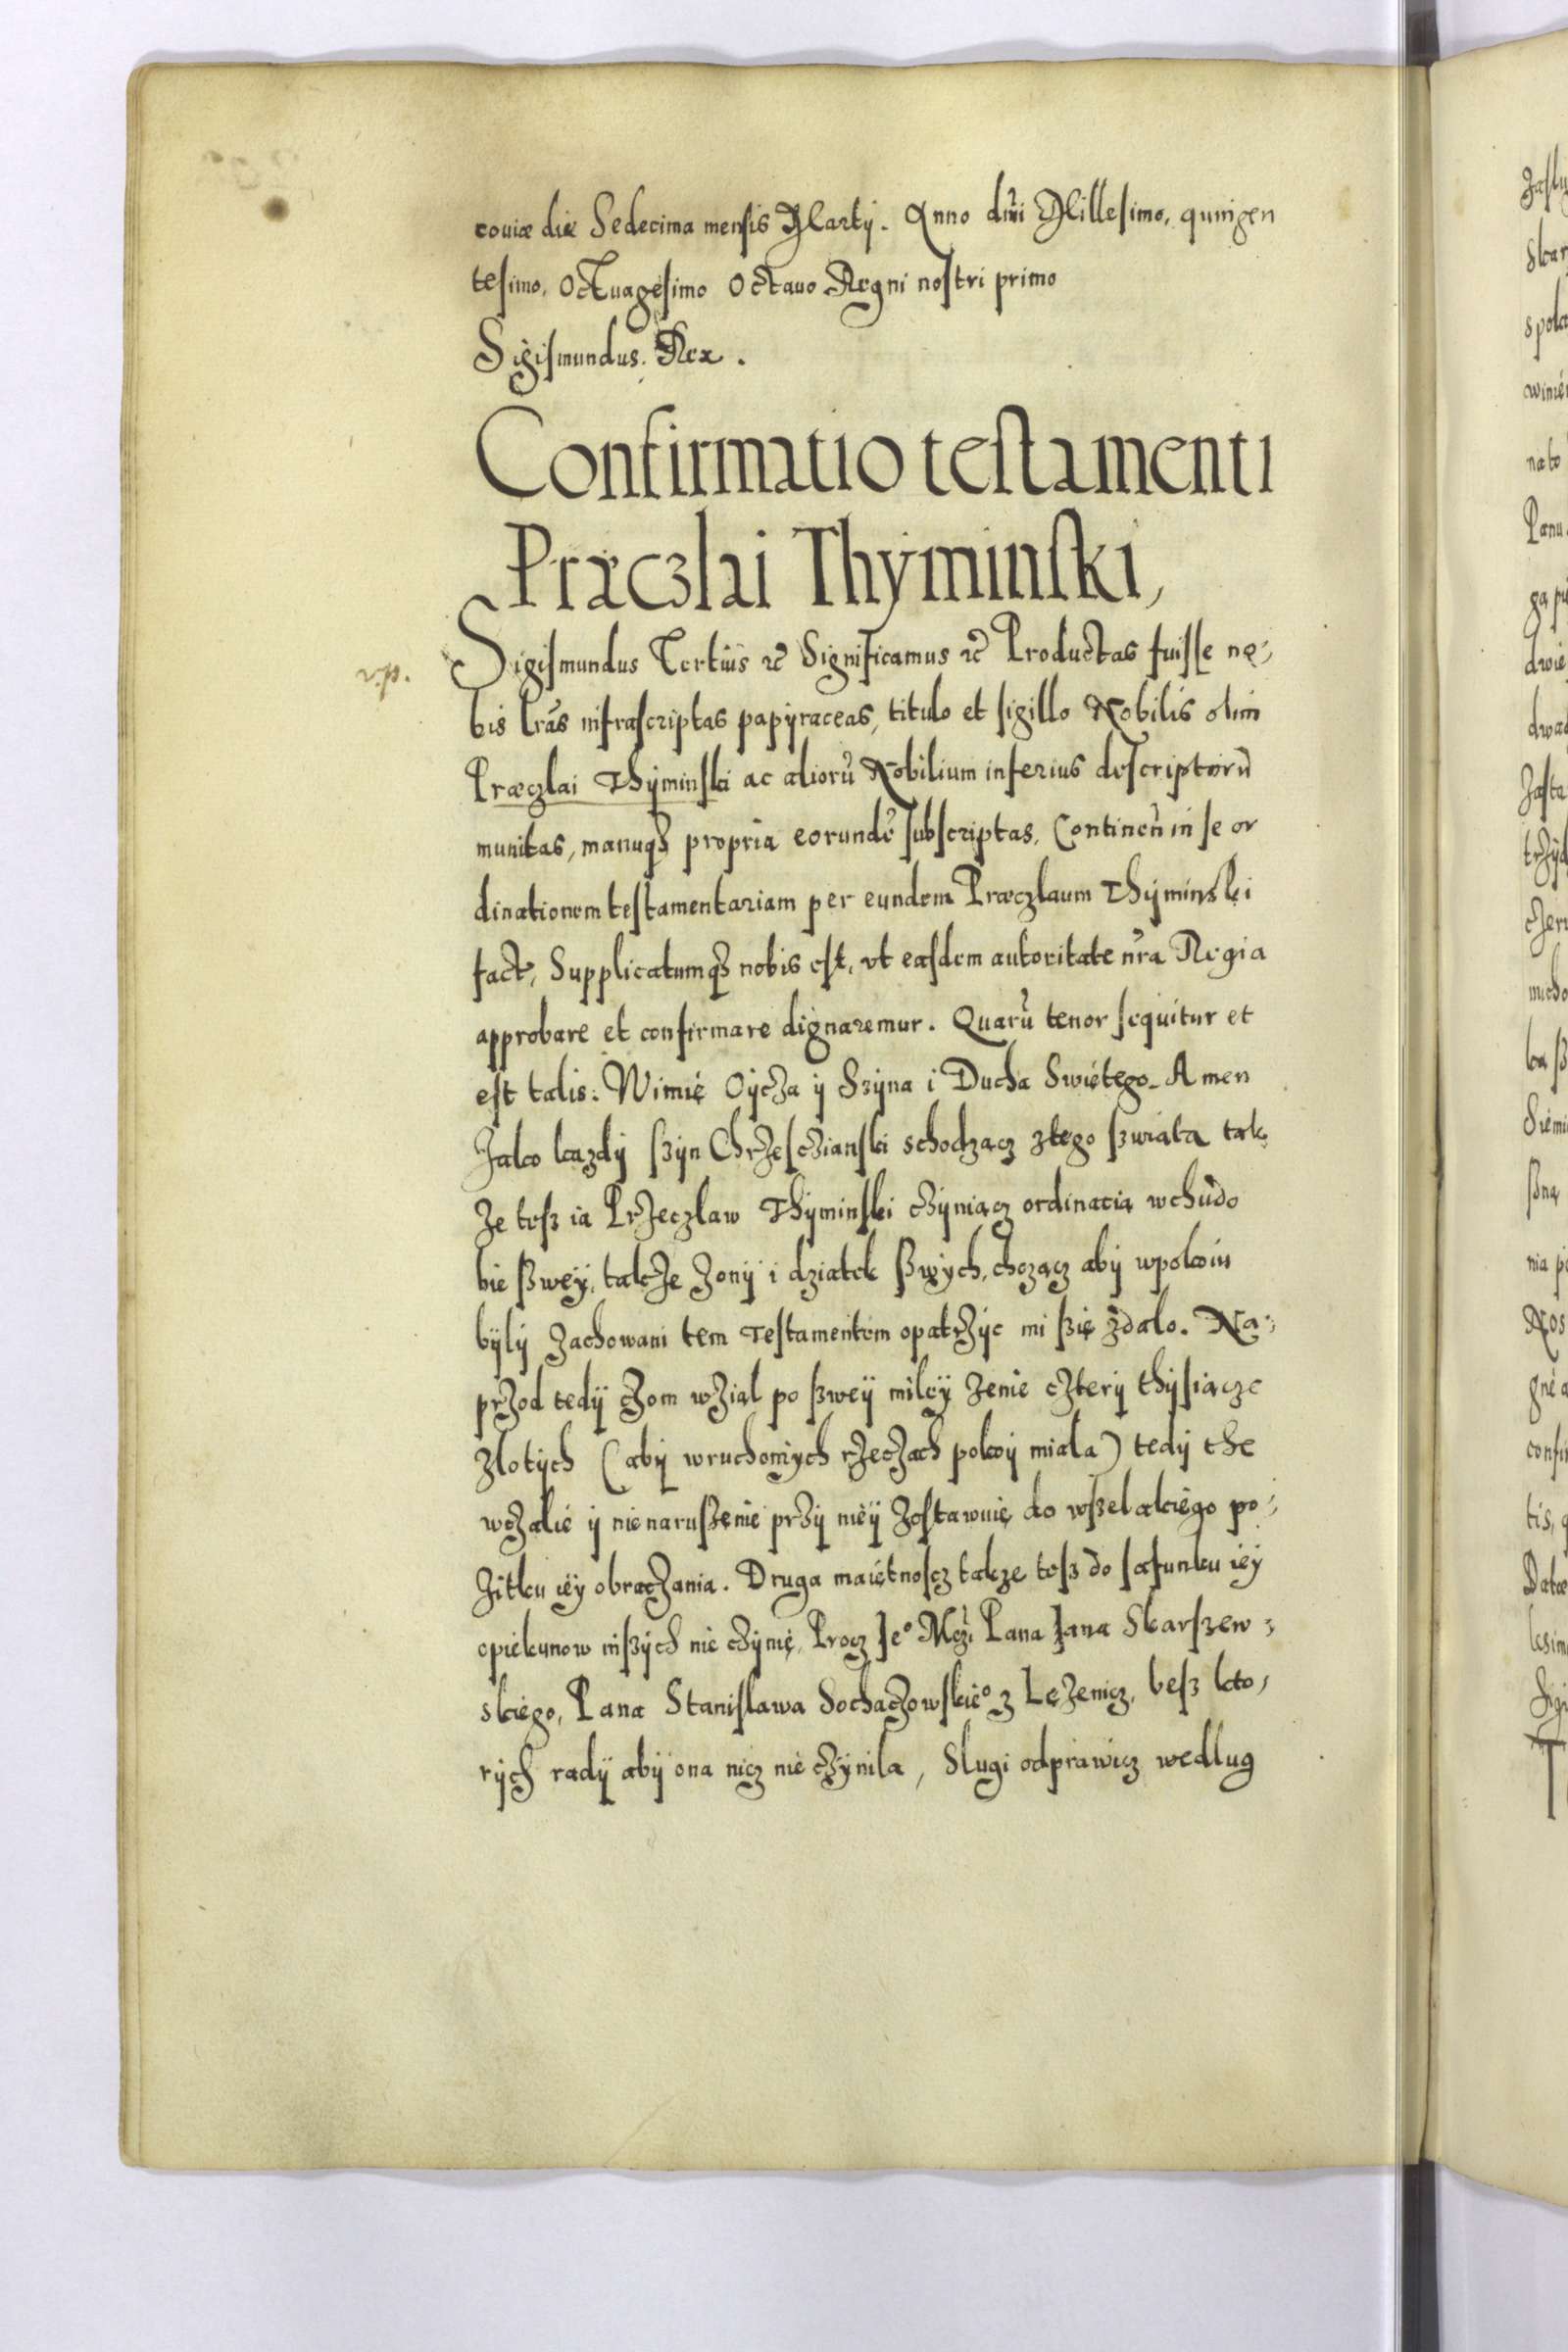 couiæ die Sedecima mensis Martij. Anno dñi Millesimo, quingen
tesimo, Octuagesimo Octauo Regni nostri primo
Sigismundus Rex.
Confirmatio testamenti
Præczlai Thyminski,
v.p.
Sigismundus Tertius etc Significamus etc Productas fuisse no-
bis lrãs infrascriptas papyraceas, titulo et sigillo Nobilis olim
Præczlai Thyminski ac aliorũ Nobilium inferius descriptorũ
munitas, manuqz propria eorundẽ subscriptas, Continen̄ in se or
dinationem testamentariam per eundem Præczlaum Thyminski
fact, Supplicatumqz nobis est, vt easdem autoritate nr̃a Regia
approbare et confirmare dignaremur. Quarũ tenor sequitur et
est talis: Wimię Oycza y Szyna i Ducha Swiętego Amen
Jako kazdy szyn Chrzesczianski schodzącz ztego szwiata tak
ze tesz ia Przeczlaw Thyminski czyniącz ordinacią wchudo
bie szwey, takze zony i dziatek szwych, chczącz aby wpokoiu
były zachowani tem Testamentem opatrzyc mi szię zdalo. Na-
przod tedy czom wzial po szwey miley zenie cztery thysiącze
zlotych (aby wruchomych rzeczach pokoy miala) tedy the
wczalie y nienaruszenie przy niey zostawuię do wszelakiego po-
zitku iey obraczania. Druga maiętnoscz takze tesz do safunku iey
opiekunow inszych nie czynię, Procz Jeº Mczi Pana Jana Skarszew-
skiego, Pana Stanislawa Sochaczowskieº z Lezenicz, besz kto-
rych rady aby ona nicz nie czynila, Slugi odprawicz wedlug